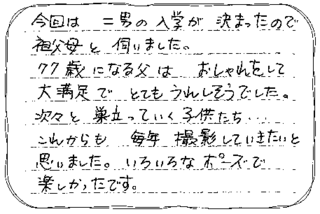 今回は 二男の入学が 決まったので
祖父母と 伺いました。
77歳になる父は おしゃれをして
大満足で とてもうれしそうでした。
次々と 巣立っていく子供たち…
これからも 毎年 撮影していきたいと
思いました。いろいろなポーズで
楽しかったです。